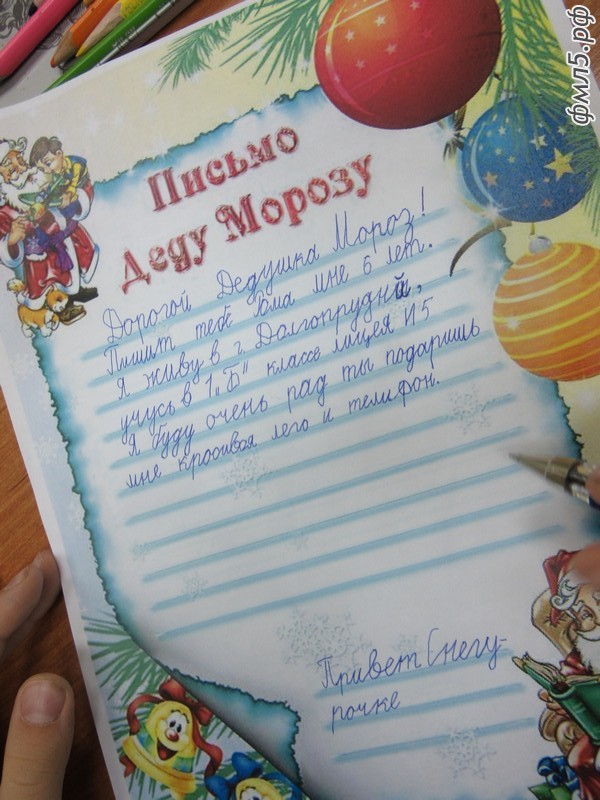 фмл5.рф
Письмо
Деду Морозу
Дорогой Дедушка Мороз!
Пишит тебе Рома мне 6 лет.
Я живу в г. Долгопрудный,
учусь в 1 „Б" классе лицея №5
Я буду очень рад ты подаришь
мне красивоя лего и телифон.
Привет Снегу-
рочке